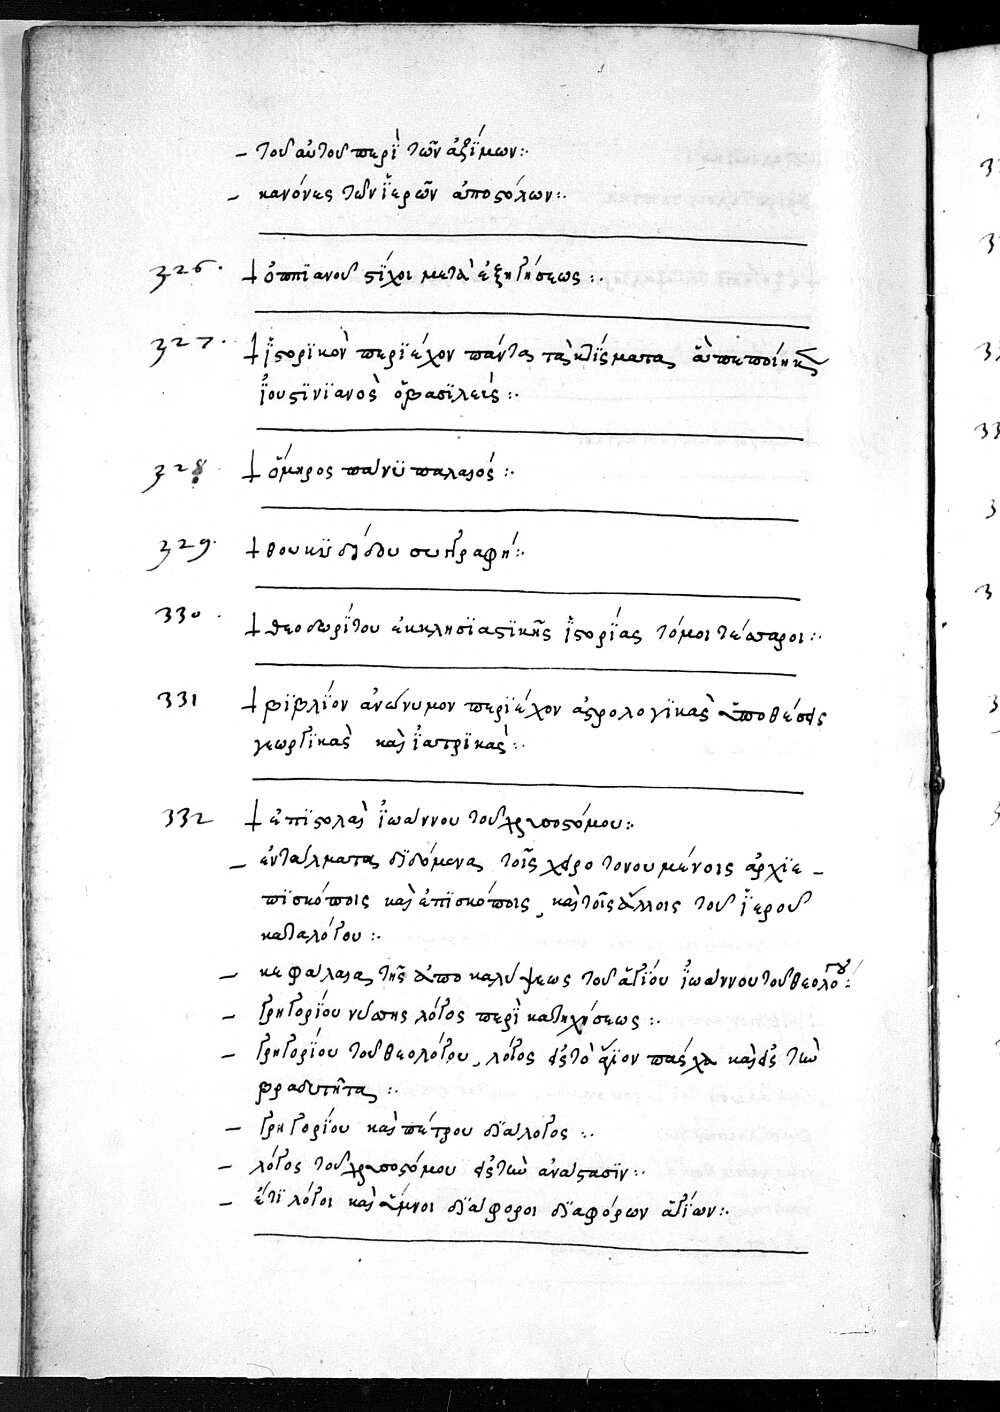 – τοῦ αὐτοῦ περὶ τῶν ἀζύμων:·
– κανόνες τῶν ἱερῶν ἀποστόλων:·
326. † ὀππιανοῦ στίχοι μετὰ ἐξηγήσεως:·
327. † ἱστορικὸν περιέχον πάντα τὰ κτίσματα ἅπερ ἐποίησεν
ἰουστινιανὸς ὁ βασιλεύς:·
328 † ὅμηρος πάνυ παλαιός:·
329. † θουκυδίδου συγγραφή:·
330. † θεοδωρίτου ἐκκλησιαστικῆς ἱστορίας τόμοι τέσσαροι:·
331 † βιβλίον ἀνώνυμον περιέχον ἀστρολογικὰς ὑποθέσεις
γεωργικὰς καὶ ἰατρικάς:·
332 † ἐπιστολαὶ ἰωάννου τοῦ χρυσοστόμου:·
– ἐντάλματα διδόμενα τοῖς χειροτονουμένοις ἀρχιε–
πισκόποις καὶ ἐπισκόποις, καὶ τοῖς ἄλλοις τοῦ ἱεροῦ
καταλόγου:·
– κεφάλαια τῆς ἀποκαλύψεως τοῦ ἁγίου ἰωάννου τοῦ θεολόγου:·
– γρηγορίου νύσσης λόγος περὶ κατηχήσεως:·
– γρηγορίου τοῦ θεολόγου, λόγος εἰς τὸ ἅγιον πάσχα καὶ εἰς τὴν
βραδυτῆτα:·
– γρηγορίου καὶ πέτρου διάλογος:·
– λόγος τοῦ χρυσοστόμου εἰς τὴν ἀνάστασιν:·
– ἔτι λόγοι καὶ ὕμνοι διάφοροι διαφόρων ἁγίων:·